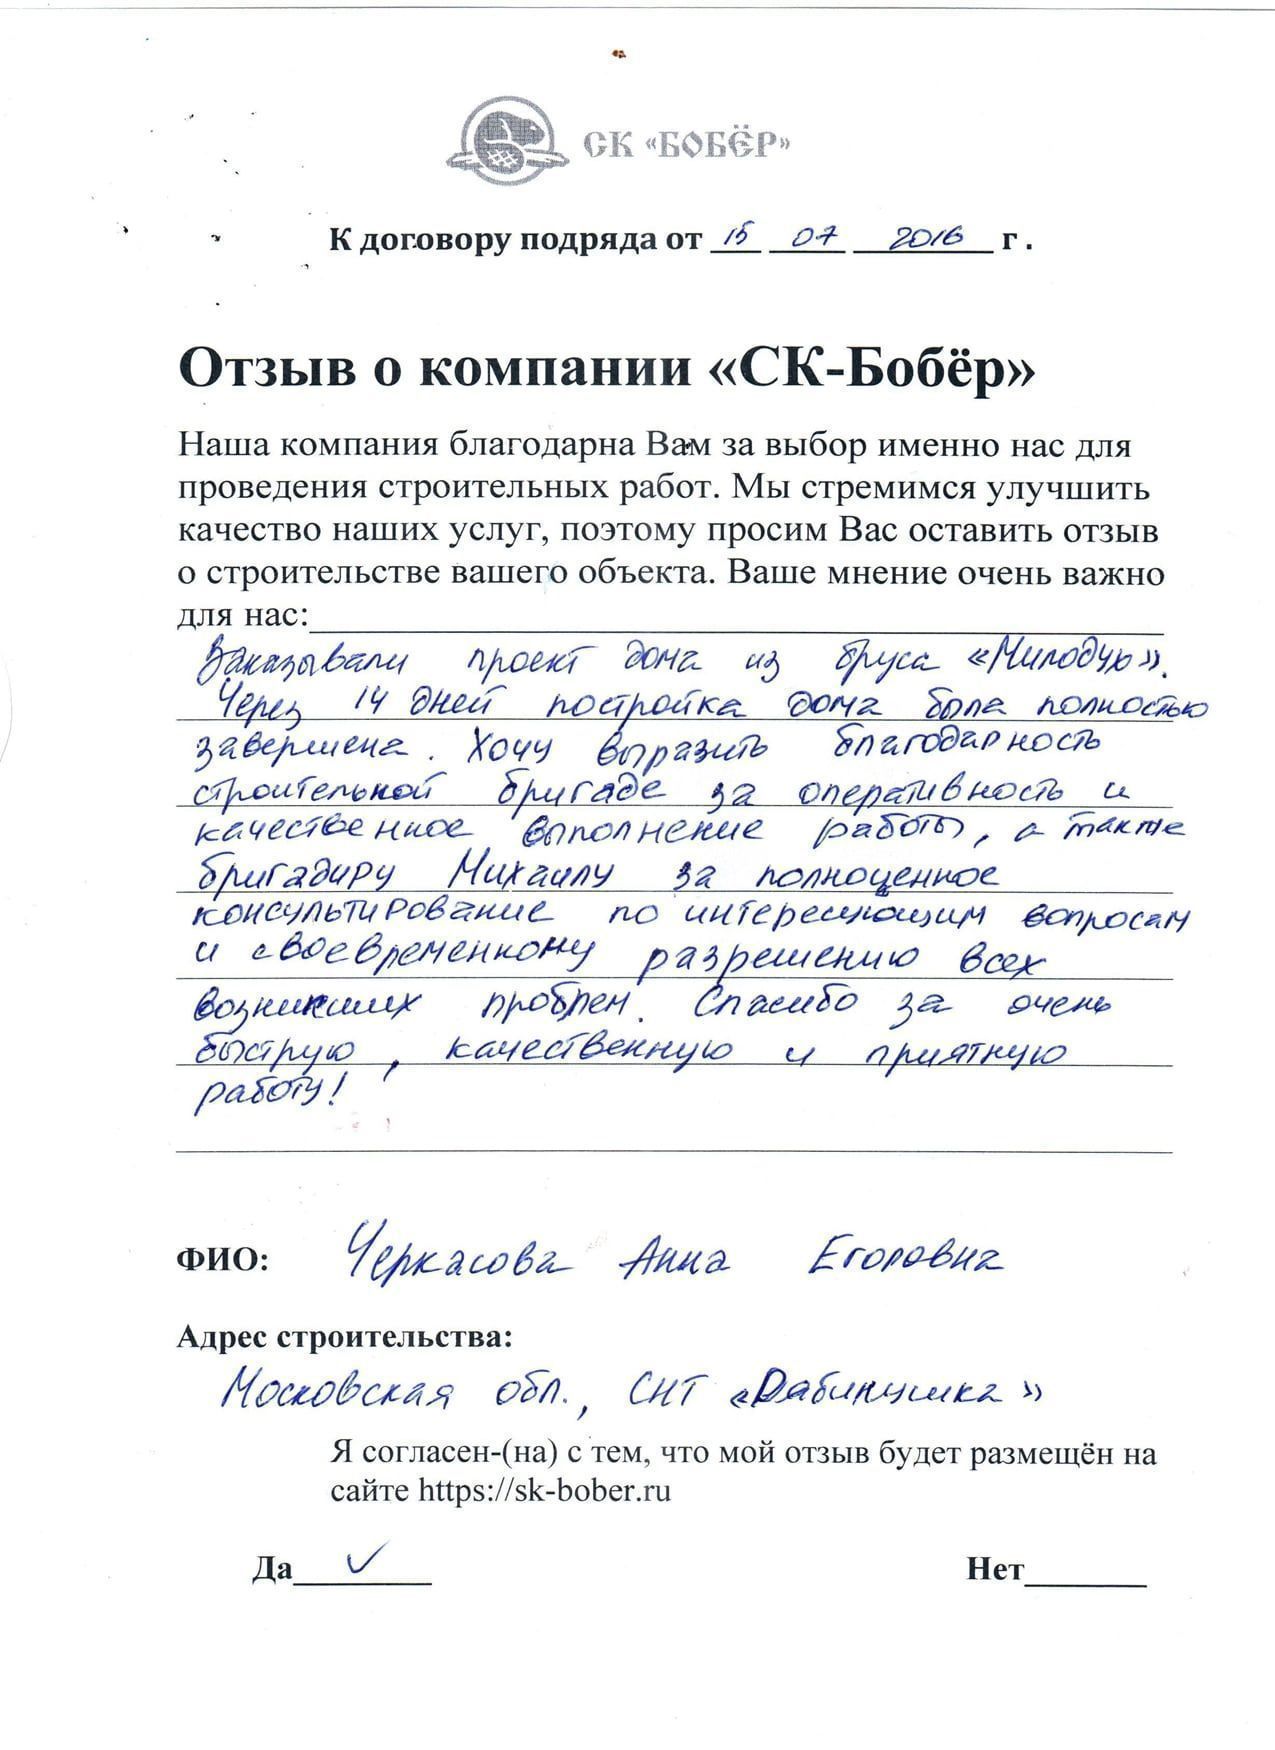 СК «БОБЁР»
К договору подряда от 15 07 2016 г .
Отзыв о компании «СК-Бобёр»
Наша компания благодарна Вам за выбор именно нас для
проведения строительных работ. Мы стремимся улучшить
качество наших услуг, поэтому просим Вас оставить отзыв
о строительстве вашего объекта. Ваше мнение очень важно
для нас:
Заказывали проект дома из бруса «Милодую».
Через 14 дней постройка дома была полностью
завершена. Хочу выразить благодарность
строительной бригаде за оперативность и
качественное выполнение работы, а также
бригадиру Михаилу за полноценное
консультирование по интересующим вопросам
и своевременному разрешению всех
возникших проблем. Спасибо за очень
быструю, качественную и приятную
работу!
ФИО: Черкасова Анна Егоровна
Адрес строительства:
Московская обл., СНТ «Рабинушка»
Я согласен-(на) с тем, что мой отзыв будет размещён на
сайте https://sk-bober.ru
Да ✓ Нет